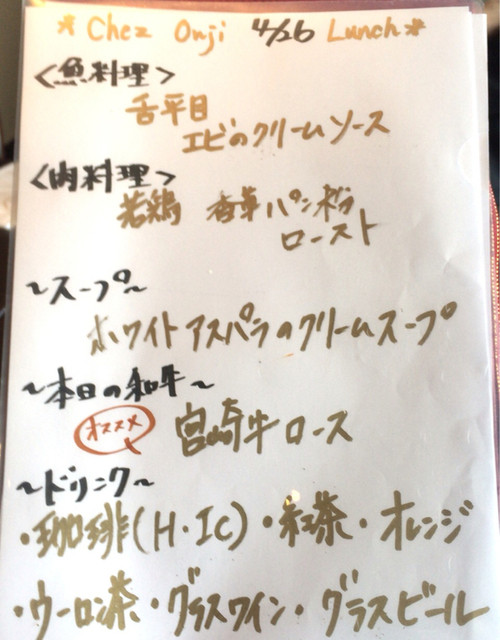 * Chez Onji 4/26 Lunch *
<魚料理>
舌平目
エビのクリームソース
<肉料理>
若鶏 香草パン粉
ロースト
~スープ~
ホワイトアスパラのクリームスープ
~本日の和牛~
オススメ 宮崎牛ロース
~ドリンク~
・珈琲(H・IC)・紅茶・オレンジ
・ウーロン茶・グラスワイン・グラスビール